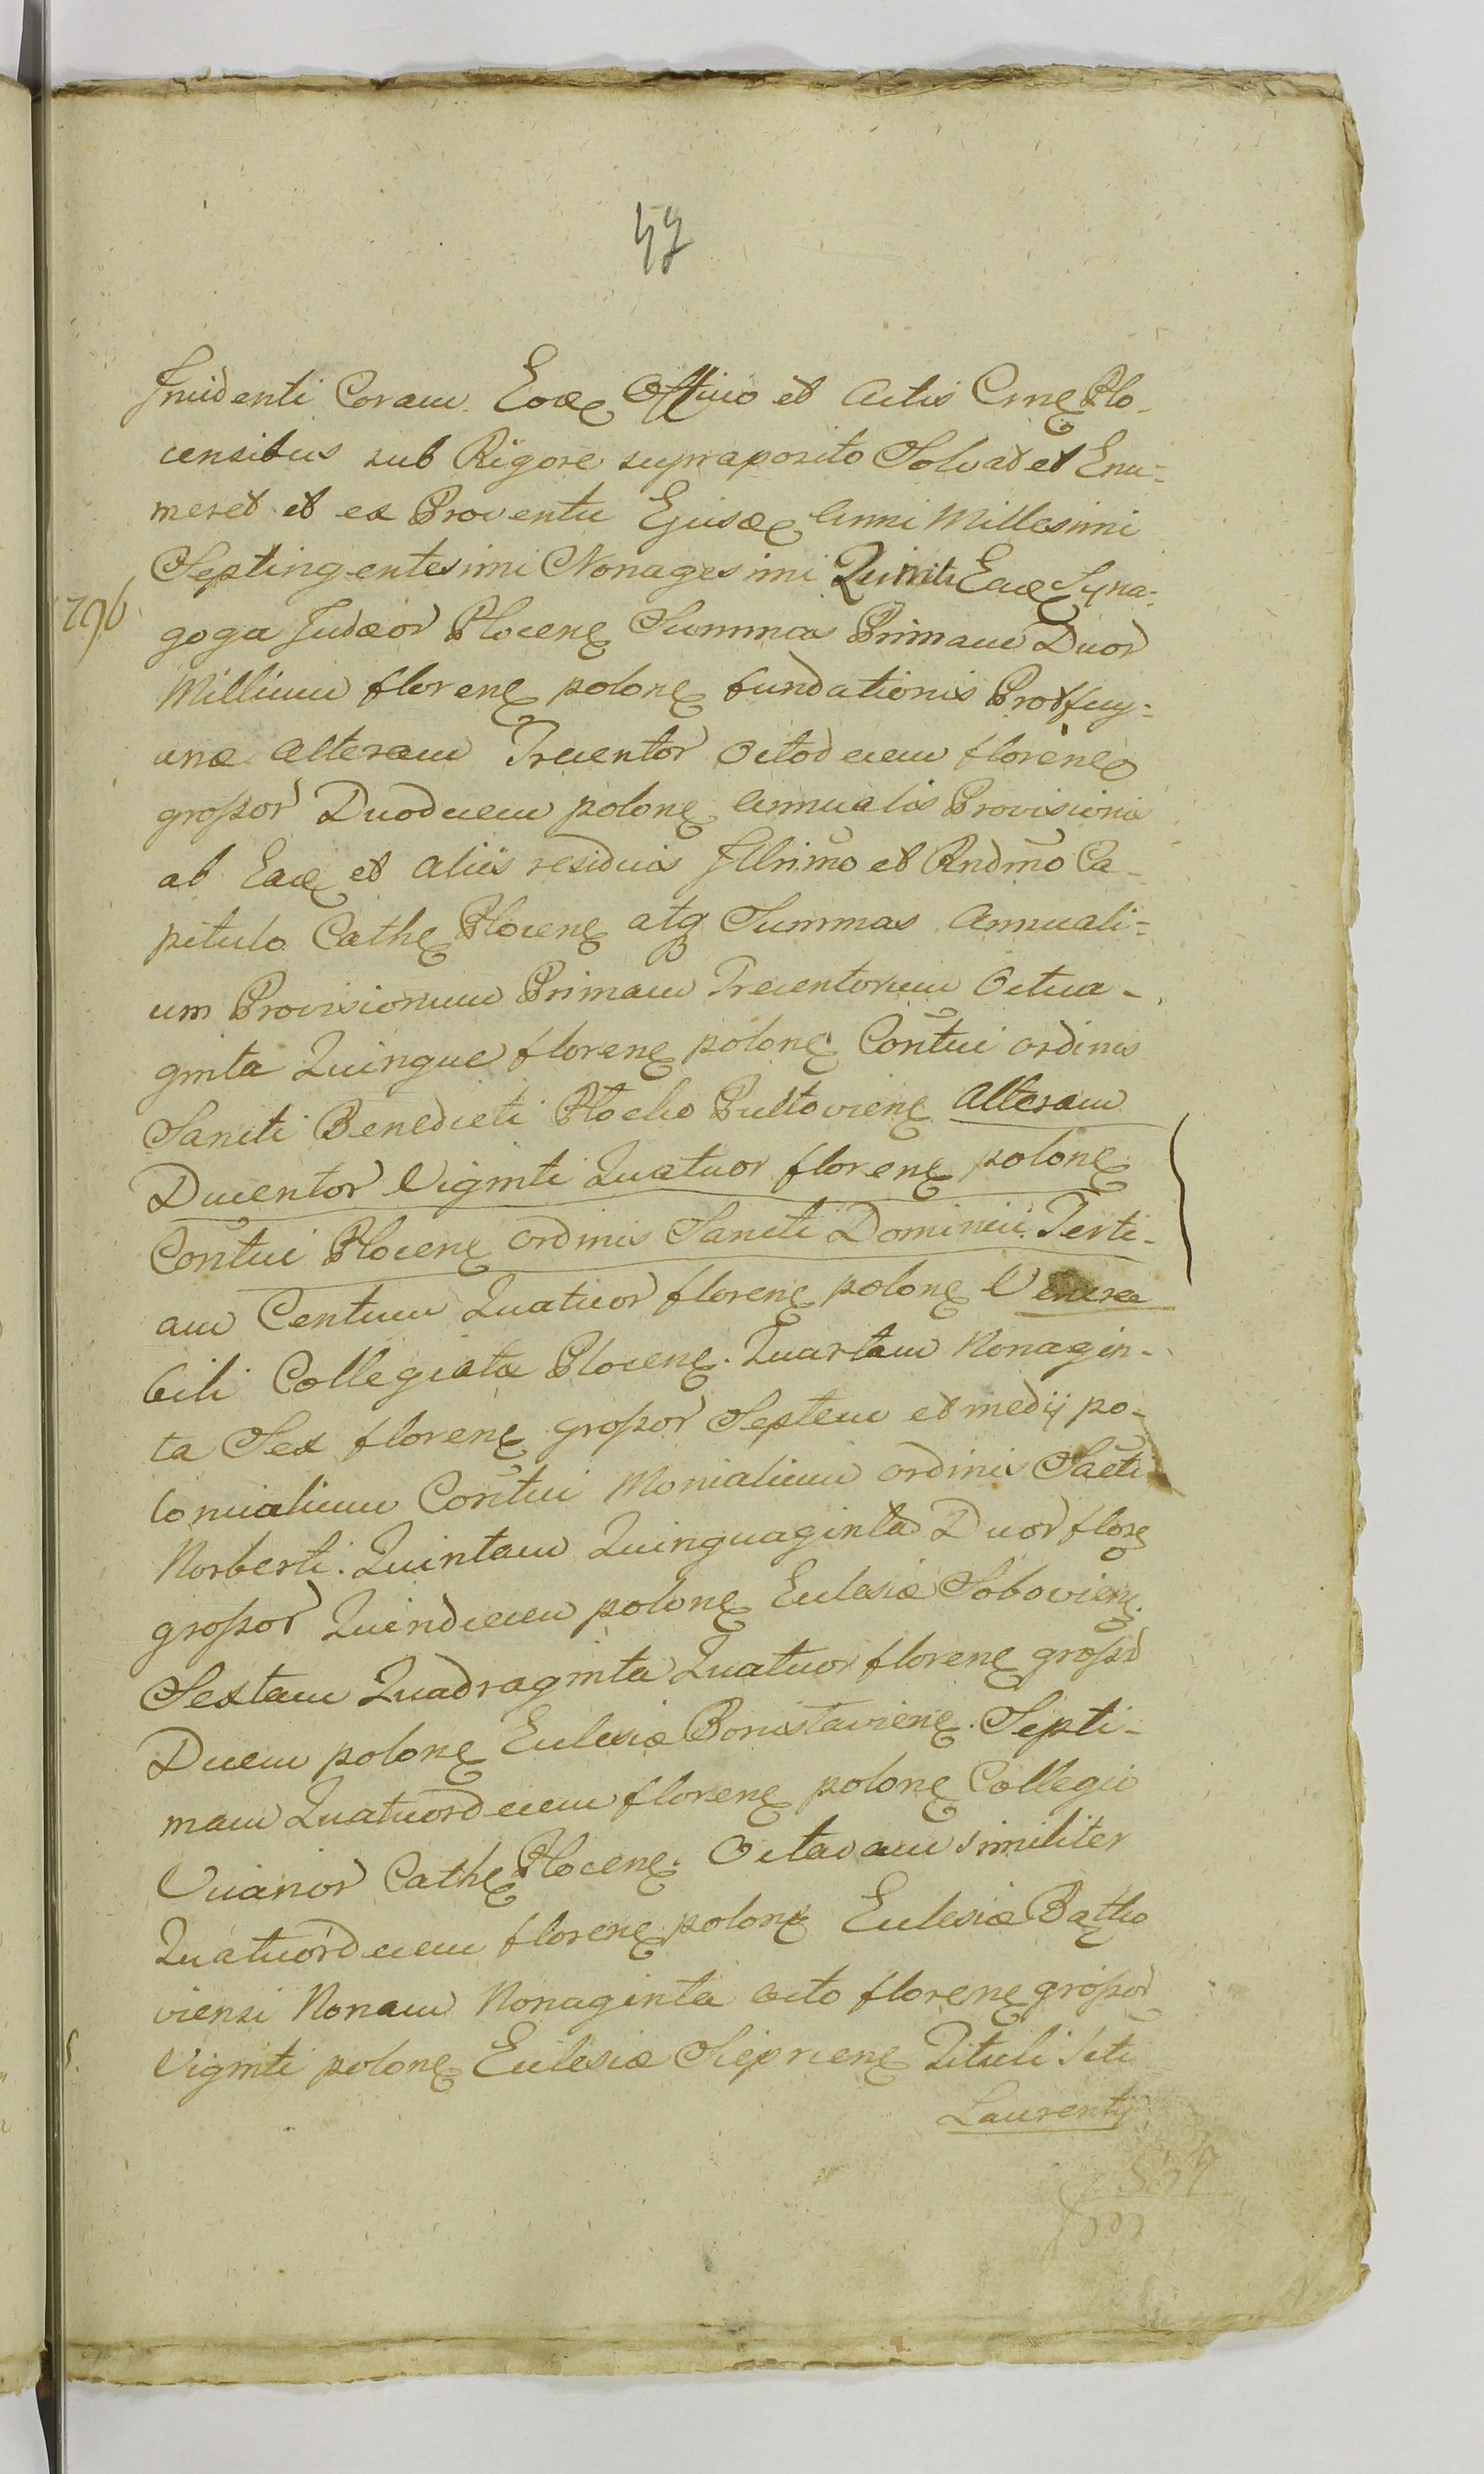 47
Incidenti Coram Eodē Officio et Actis Crnē Plo-
censibus sub Rigore supraposito Solvat et Enu-
meret et ex Proventu Ejusdē Anni Millesimi
Septingentesimi Nonagesimi Quinti Eadē Syna-
goga Judæor Plocenē Summas Primam Duor
Millium florenē polonē fundationis
unæ Alteram Trecentor Octodecem florenē
grossor Duodecem polonē Annualis Provisionis
ab Eadē et aliis residuis Illrimo et Rndmo Ca-
pitulo Cathē Plocenē atq Summas Annuali-
um Provisionum Primam Trecentorum Octua-
ginta Quinque florenē polonē Contui ordinis
Sancti Benedicti Plocko Pultovienē Alteram
Ducentor Viginti Quatuor florenē polonē
Contui Plocenē ordinis Sancti Dominici. Terti-
am Centum Quatuor florenē polonē Venera
bili Collegiatæ Plocenē. Quartam Nonagin-
ta Sex florenē grossor Septem et medij po-
lonicalium Contui Monialium ordinis Sacti
Norberti. Quintam Quinquaginta Duor florē
grossor Quindecem polonē Ecclesiæ Sobovienē
Sextam Quadraginta Quatuor florenē grossr
Decem polonē Ecclesiæ Bonislavienē. Septi-
mam Quatuordecem florenē polonē Collegio
Vicarior Cathē Plocenē. Octavam similiter
Quatuordecem florenē polonē Ecclesiæ
viensi Nonam Nonaginta octo florenē grossor
Viginti polonē Ecclesiæ Sieprcenē Tituli Scti
Laurentij